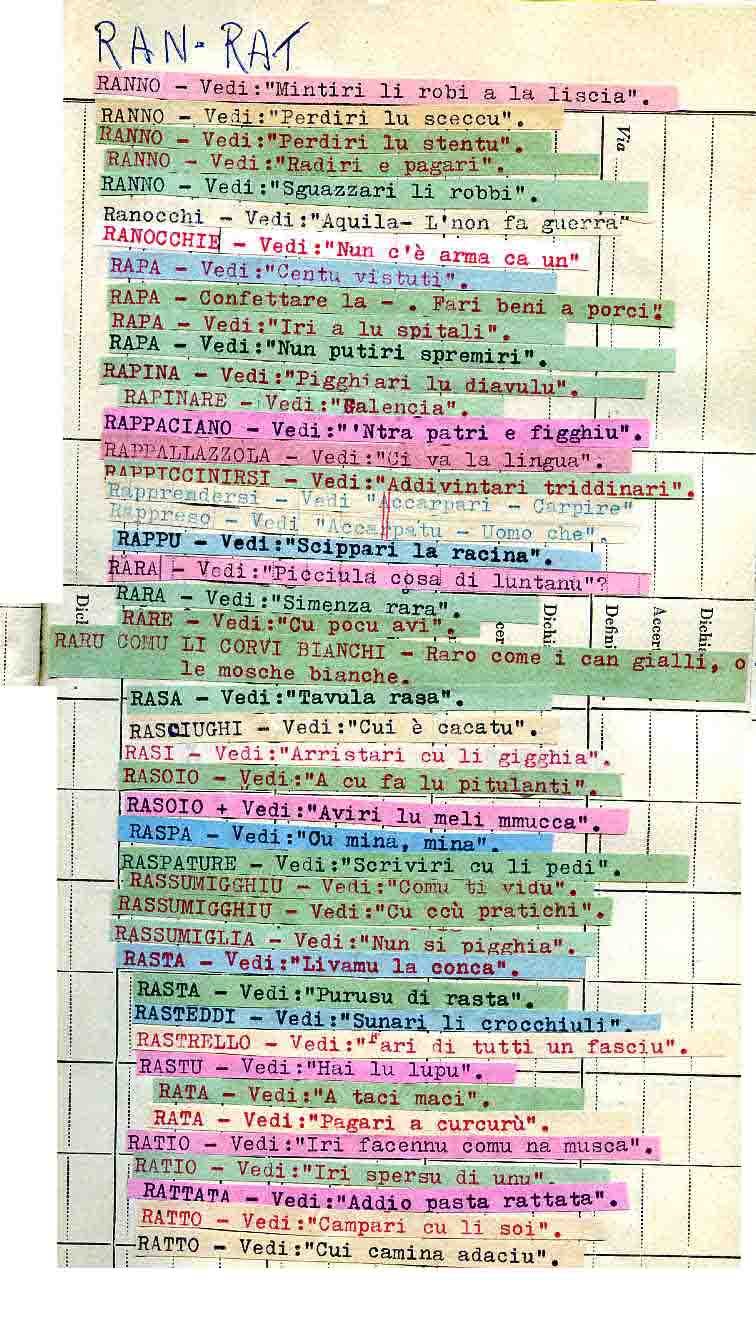 RAN-RAT
RANNO - Vedi:"Mintiri li robi a la liscia".
RANNO - Vedi:"Perdiri lu sceccu".
RANNO - Vedi:"Perdiri lu stentu".
RANNO - Vedi:"Radiri e pagari".
RANNO - Vedi:"Sguazzari li robbi".
Ranocchi - Vedi:"Aquila- L'non fa guerra"
RANOCCHIE - Vedi:"Nun c'è arma ca un"
RAPA - Vedi:"Centu vistuti".
RAPA - Confettare la - . Fari beni a porci".
RAPA - Vedi:"Iri a lu spitali".
RAPA - Vedi:"Nun putiri spremiri".
RAPINA - Vedi:"Pigghiari lu diavulu".
RAPINARE - Vedi:"Balencia".
RAPPACIANO - Vedi:"'Ntra patri e figghiu".
RAPPALLAZZOLA - Vedi:"Ci va la lingua".
RAPPICCINIRSI - Vedi:"Addivintari triddinari".
Rapprendersi - Vedi "Accarpari - Carpire"
Rappreso - Vedi "Accarpatu - Uomo che".
RAPPU - Vedi:"Scippari la racina".
RARA - Vedi:"Picciula cosa di luntanu"?
RARA - Vedi:"Simenza rara".
RARE - Vedi:"Cu pocu avi".
RARU COMU LI CORVI BIANCHI - Raro come i can gialli, o
le mosche bianche.
RASA - Vedi:"Tavula rasa".
RASCIUGHI - Vedi:"Cui è cacatu".
RASI - Vedi:"Arristari cu li gigghia".
RASOIO - Vedi:"A cu fa lu pitulanti".
RASOIO + Vedi:"Aviri lu meli mmucca".
RASPA - Vedi:"Cu mina, mina".
RASPATURE - Vedi:"Scriviri cu li pedi".
RASSUMIGGHIU - Vedi:"Comu ti vidu".
RASSUMIGGHIU - Vedi:"Cu ccù pratichi".
RASSUMIGLIA - Vedi:"Nun si pigghia".
RASTA - Vedi:"Livamu la conca".
RASTA - Vedi:"Purusu di rasta".
RASTEDDI - Vedi:"Sunari li crocchiuli".
RASTRELLO - Vedi:"Fari di tutti un fasciu".
RASTU - Vedi:"Hai lu lupu".
RATA - Vedi:"A taci maci".
RATA - Vedi:"Pagari a curcurù".
RATIO - Vedi:"Iri facennu comu na musca".
RATIO - Vedi:"Iri spersu di unu".
RATTATA - Vedi:"Addio pasta rattata".
RATTO - Vedi:"Campari cu li soi".
RATTO - Vedi:"Cui camina adaciu".
Via
cer
Dichi
Defini
Accert
Dichia